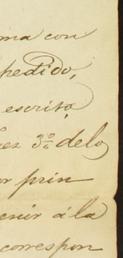 ma con
pedido,
escrito,
ez 3º delo
or prin
enir á la
correspon